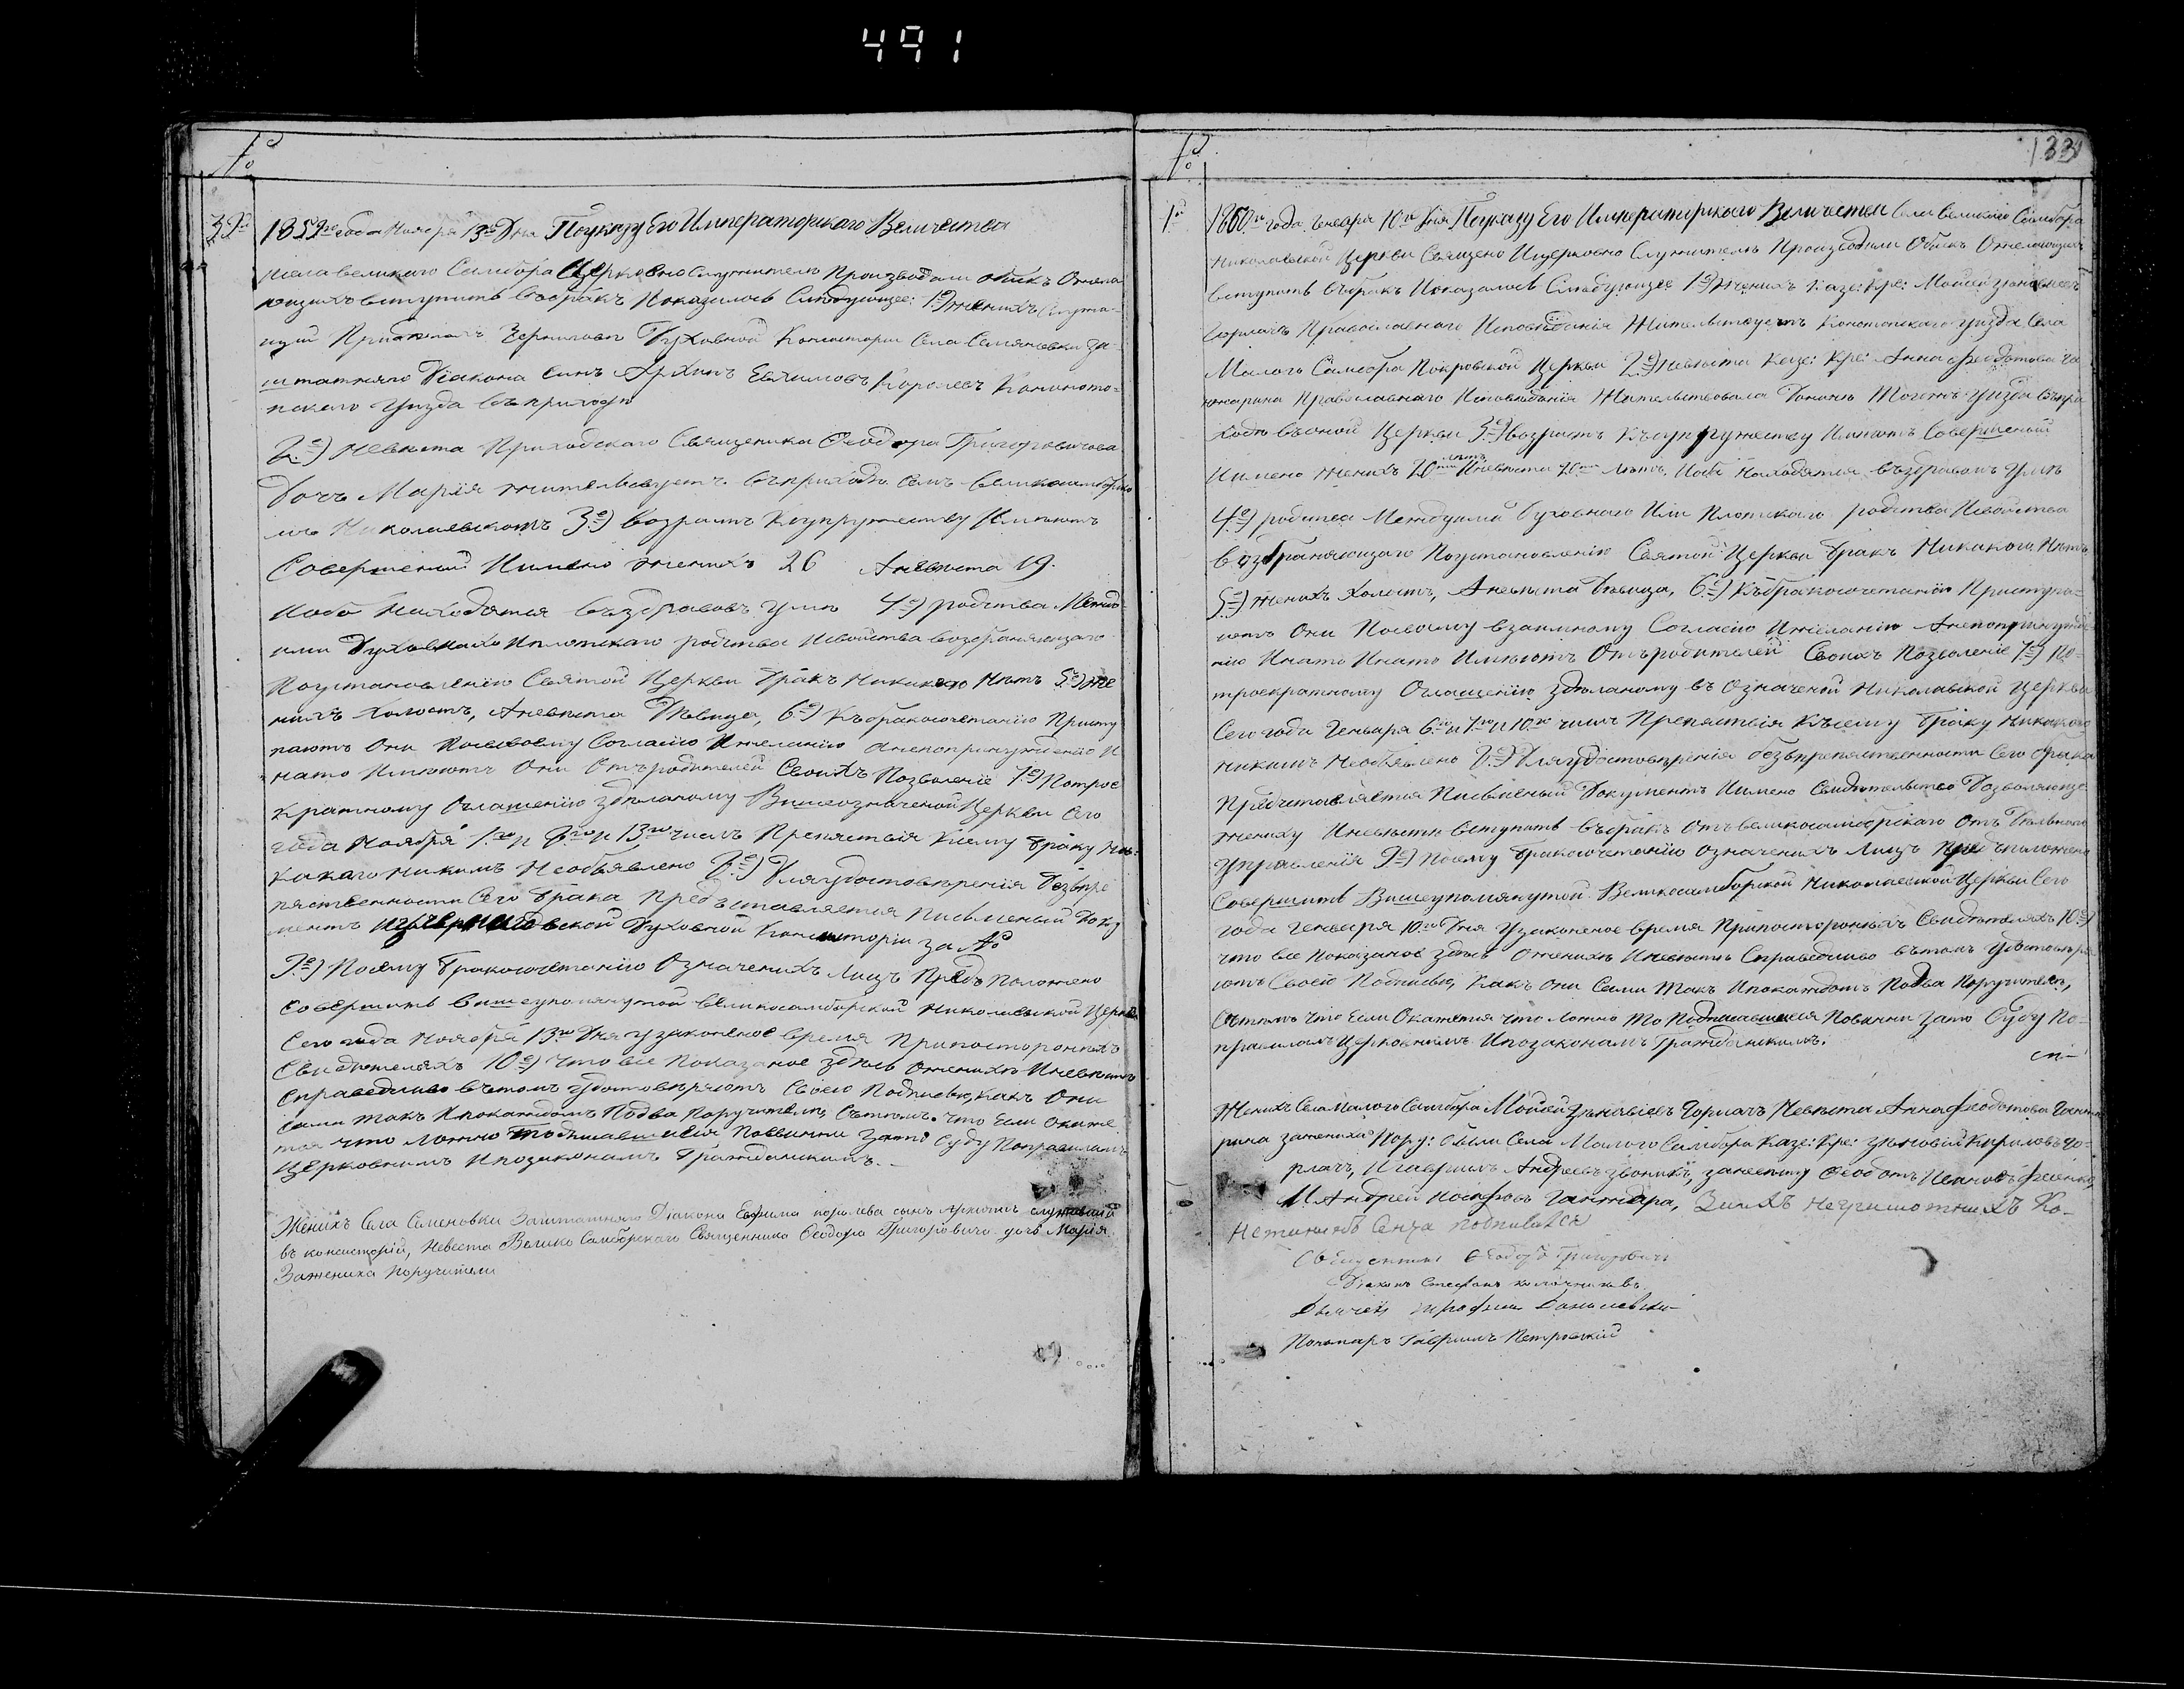 491
№
39й
1859го года Ноября 13го Дня Поуказу Его Императорскаго Величества
села великаго Самбора Церковно Служители Производили обыскъ Ожела
ющихъ вступить вобракъ Показалось Следующее: 1е) женихъ Служа-
щий Духовной Консистории Села Семяновки За-
штатняго Діакона синъ Архипъ Евхимовъ Королевъ Конното-
пскаго Уизда въ приходе
2е) невѣста Приходскаго Священика Феодора Григоровичова
дочь Марія жительствуетъ въприходѣ семъ великосамборско
мъ Николаевскомъ 3е) возрастъ Ксупружеству Имѣютъ
Совершеный Имяно женихъ 26 Аневѣста 19.
Иоба Находятся въздравовъ умѣ 4е) родства Межд
ими Духовнаго Иплотскаго родства Исвойства возбраняющаго
Поустановлению Святой Церкви бракъ Никакого Нѣтъ 5е) же
нихъ холостъ, Аневѣста Дѣвица, 6е) Къбракосочетанію Присту
паютъ Они Посвоему Согласію Ижеланію Анепопринуждению И
нато Имѣютъ Они Отъродителей Своихъ Позволеніе 7е) Потрое
кратному Оглашенію Здѣланому Вишеозначеной Церкви Сего
года Ноября 1го и 8го и 13го числъ Препяствія Ксему браку Ни-
какаго никимъ Необъявлено 8е) Дляудостовѣренія Безпре
пяственности Сего брака Предъставляется Письменый Доку
ментъ Изчерниговской Духовной Консисторіи за №
9е) Посему бракосочетанию Означенихъ Лицъ Предъ Положено
совершить вишеупомянутой великосамборской Николаевской Церкви
Сего года Ноября 13го Дня узаконеное время Припосторонихъ
Свидѣтеляхъ 10е) Что все Показаное здѣсь Оженихѣ Иневѣстѣ
справедливо вътомъ удостовѣряютъ Своею Подписью, какъ Они
сами такъ Ипокаждомъ Подва Поручителя, Сътѣмъ что Если Окаже
тся что ложно То Подписавшиеся Повинни зато Суду Поправиламъ
Церковнимъ Ипозаконамъ Гражданскимъ.
Женихъ Села Семеновки Заштатняго Діакона Евфима королева сынъ Архипъ служащій
въ консисторіи, Невеста Велико Самборскаго Священника Феодора Григоровича дочь Марія.
Зажениха Поручители
№
133
1й
1860го года Генваря 10го Дня Поуказу Его Императорскаго Величества Села Великаго Самбора
Николаевской Церкви Священо Ицерковно Служители Производили Обыскъ Ожелающихъ
вступить въбракъ Показалось Слѣдующее 1е) Женихъ Казе: Кре: Мойсей Зѣновіевъ
Горлачъ Православнаго Исповѣданія Жительствуетъ Конотопскаго Уизда Села
Малого Самбора Покровской Церкви 2е) Невѣста Казе: Кре: Анна Феодотова Га
нжарина Православнаго Исповѣданія Жительствовала Донинѣ Тогожъ Уизда Въпри
ходѣ въоной Церкви 3е) Возрастъ Късупружеству Имѣютъ Совершеный
Имено Женихъ 20ти лѣтъ Иневѣста 20ти лѣтъ. Иоба Находятся въздравомъ умѣ
4е) родства Междуими Духовнаго Или Плотскаго родства Исвойства
возбраняющаго Поустановлению Святой Церкви бракъ Никакого Нѣтъ
5е) женихъ Холостъ, Аневѣста Дѣвица, 6е) Къбракосочетанію Приступа-
ютъ Они Посвоему взаимному Согласію Ижеланію Анепопринужде-
нію Инато Инато Имѣютъ Отъродителей Своихъ Позволеніе 7е) По-
троекратному Оглашенію здѣланому въ Означеной Николаевской Церкви
Сего года Генваря 6го и 7го и 10го числъ Препяствія Къ сему браку Никакого
Никимъ Необъявлено 8е) Дляудостовѣренія безпрепяственности Сего брака
Предъставляется Писменый Документъ Имено Свидѣтельство Дозволяюще
жениху Иневѣстѣ вступить въбракъ Отъвеликосамборскаго Отъ
Управленія 9е) Посему бракосочетанію означенихъ Лицъ Предъположено
Совершить Вишеупомянутой Великосамборской Николаевской Церкви Сего
года Генваря 10го Дня Узаконеное время Припосторонихъ Свидѣтеляхъ 10е)
Что все Показаное здѣсь Оженихѣ Иневѣстѣ Справедливо вътомъ Удостовѣря
ютъ Своею Подписью, Какъ Они Сами Такъ Ипокаждомъ Подва Поручителя,
Сътѣмъ что Если Окажется что Ложно То Подписавшиеся Повинни Зато Суду По-
правиламъ Церковнимъ Ипозаконамъ Гражданскимъ.
Женихъ Села Малого Самбора Мойсей Зѣновіевъ Горлачъ Невѣста Анна Феодотова Ганжа
рина зажениха Пору: были Села Малого Самбора Казе: Кре: Зѣновій Кириловъ Го-
рлачъ, Игаврилъ Андреевъ Звоникъ, заневѣсту Феодотъ Ивановъ
И Андрей Иосифовъ Ганжара, Зихъ Неграмотнихъ
подписался
Священникъ Феодоръ Григоровичъ
Діаконъ Стефанъ
Дьячекъ Трофимъ Данилевски
Пономаръ Гавриилъ Петровский